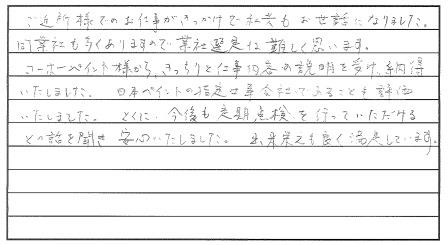 ご近所様でのお仕事がきっかけで私共もお世話になりました。
同業社も多くありますので業社選定は難しく思います。
コーホーペイント様から、きっちりと仕事内容の説明を受け、納得
いたしました。日本ペイントの指定工事会社であることも評価
いたしました。とくに、今後も定期点検を行っていただける
との話を聞き安心いたしました。出来栄えも良く満足しています。